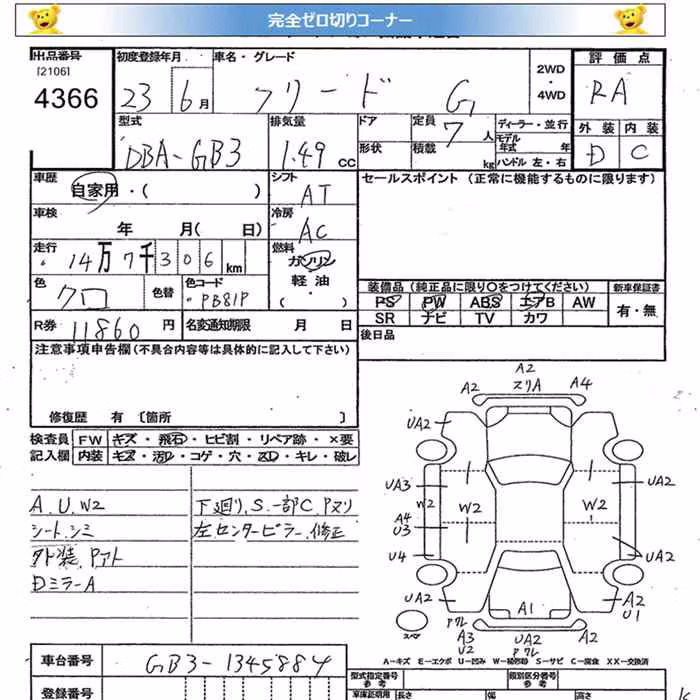 完全ゼロ切りコーナー
出品番号
[2106]
4366
初度登録年月
23 6月
車名・グレード
フリード G
2WD
・
4WD
評価点
RA
外装 内装
D C
型式
DBA-GB3
排気量
1.49 CC
ドア
形状
定員 7 人
積載 kg
ディーラー・並行
モデル
年式 年
ハンドル 左・右
車歴
自家用・( )
シフト
AT
セールスポイント(正常に機能するものに限ります)
車検
年 月( 日)
冷房
AC
走行
14万7千306km
燃料
ガソリン
軽油
・( )
色
クロ
色替
色コード
PB81P
装備品(純正品に限り〇をつけてください)
新車保証書
PS PW ABS エアB AW
SR ナビ TV カワ
有・無
R券 11860円
名変通知期限 月 日
後日品
注意事項申告欄(不具合内容等は具体的に記入して下さい)
修復歴 有[箇所 ]
検査員 FW キズ・飛石・ヒビ割・リペア跡・×要
記入欄 内装 キズ・汚レ・コゲ・穴・スレ・キレ・破レ
A.U.W2
シートシミ
外装Pアト
Dミラ-A
下廻り.S.一部C.Pヌリ
左センターピラー.修正
A2
A2 スリA A4
UA2
UA3
W2
A4
U3
U4
UA2
W2 W2
UA2
UA2
A1
A2
U1
スペア
Pワレ
A3
U2
UA2
Pワレ
A=キズ E=エクボ U=凹み W=補修跡 S=サビ C=腐食 XX=交換済
車台番号
GB3-1345884
登録番号
型式指定番号
参考
類別区分番号
参考
車庫証明用 長さ 幅 高さ